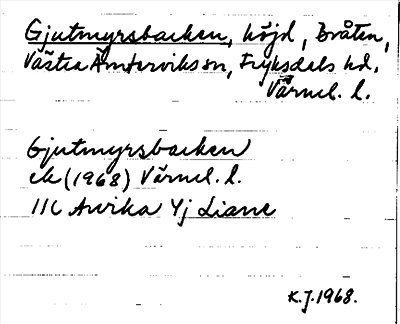 Gjutmyrsbacken, höjd, Bråten,
Västra Ämtervik sn, Fryksdals hd.
Värml. l.
Gjutmyrsbacken
ek (1968) Värml. l.
11C Arvika Yj Liane
K.J. 1968.